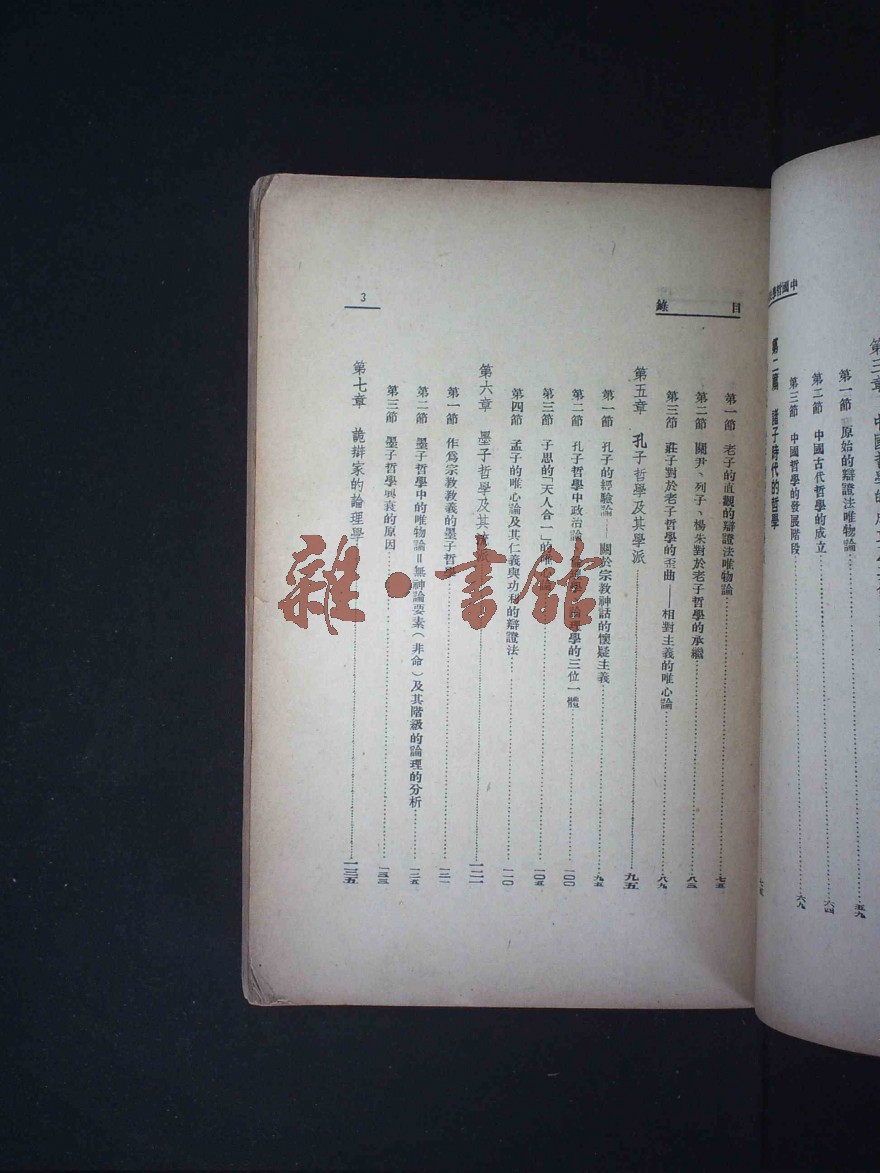 中國哲學
第三章 中國哲學的成立
第一節 原始的辯證法唯物論……五九
第二節 中國古代哲學的成立……六四
第三節 中國哲學的發展階段……六九
第二篇 諸子時代的哲學
目錄
第一節 老子的直觀的辯證法唯物論……七五
第二節 關尹、列子、楊朱對於老子哲學的承繼……八三
第三節 莊子對於老子哲學的歪曲——相對主義的唯心論……八九
第五章 孔子哲學及其學派……九五
第一節 孔子的經驗論——關於宗教神話的懷疑主義……九五
第二節 孔子哲學中政治論、學、論理學的三位一體……一〇〇
第三節 子思的「天人合一」的唯心論……一〇五
第四節 孟子的唯心論及其仁義與功利的辯證法……一一〇
第六章 墨子哲學及其流派……一二一
第一節 作爲宗教教義的墨子哲學……一二一
第二節 墨子哲學中的唯物論=無神論要素(非命)及其階級的論理的分析……一二五
第三節 墨子哲學興衰的原因……一三三
第七章 詭辯家的論理學……一三五
3
雜·書館